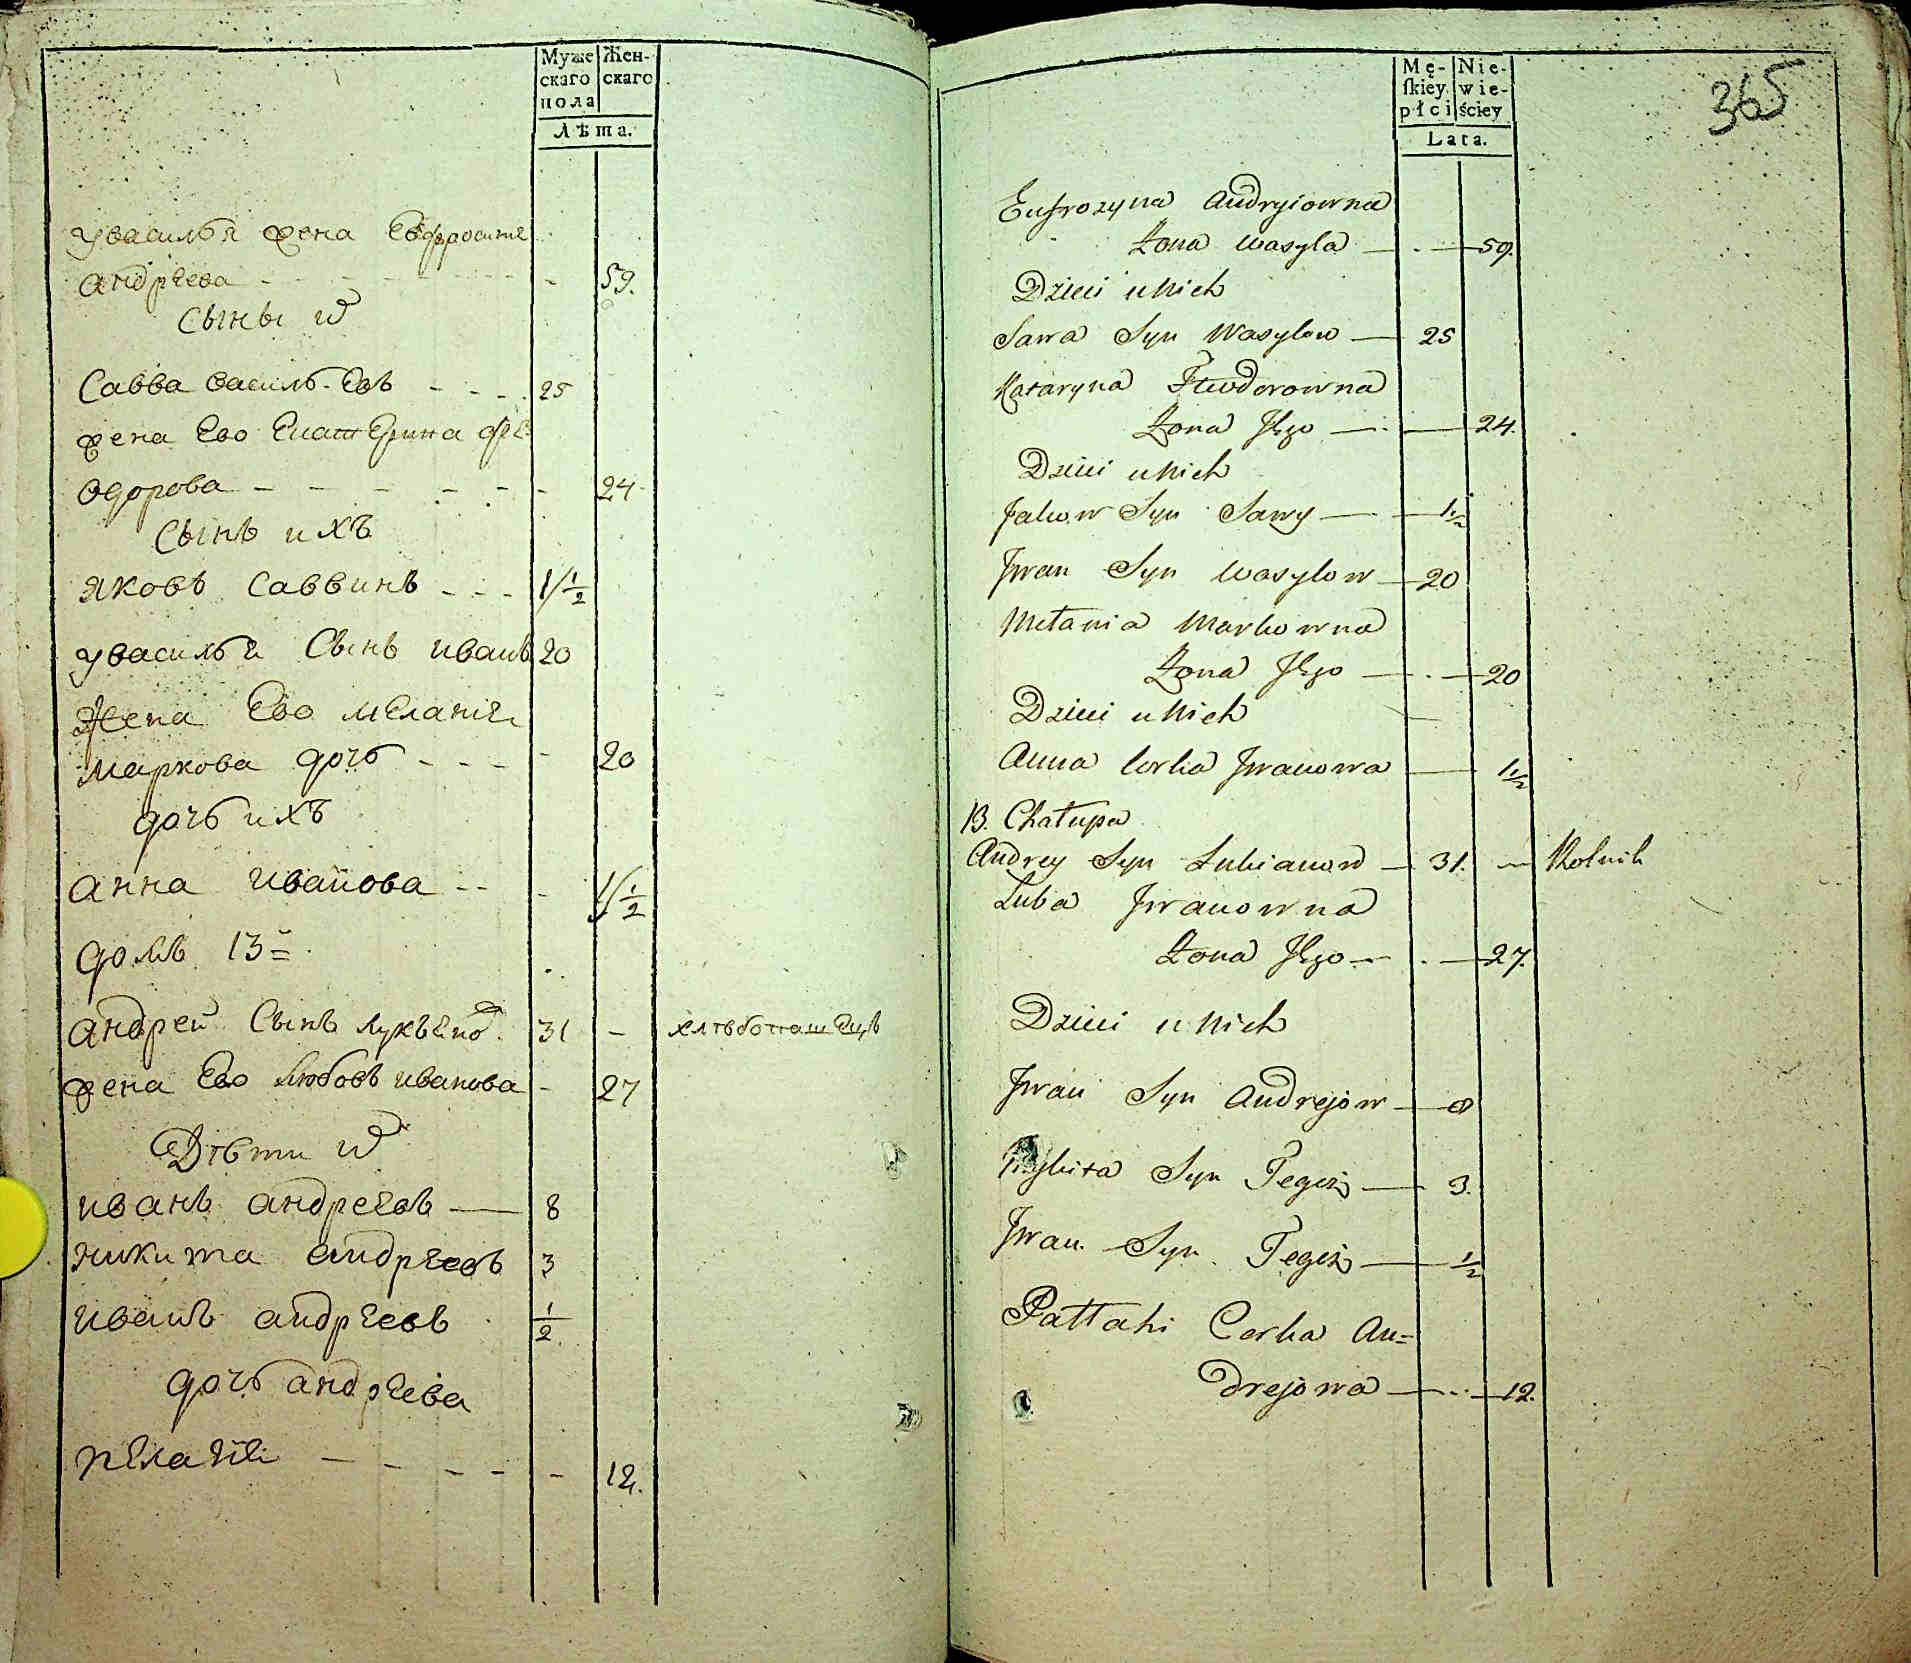 Муже
скаго
пола
Жен-
скаго
Лѣта.
увасилья жена Евфросинье
андреева - - - - - 59.
Сыны
Савва василь-евъ - - - 25
жена Ево Екатерина фе-
одорова - - - - - - 24
Сынъ ихъ
яковъ саввинъ - - - 1/½
увасилья Сынъ иванъ 20
Жена Ево мелание
маркова дочь - - - - 20
дочь ихъ
анна иванова - - - 1/½
домъ 13й
андрей Сынъ лукьяно 31 - хлѣбопашецъ
жена Ево любовь иванова - 27
Дѣти
иванъ андреевъ — 8
никита андреевъ 3
иванъ андреевъ ½
дочь андреева
пелагие - - - - - 12.
Mę-
skiey
płci
Nie-
wie-
ściey
Lata.
365
Eufrozyna Andryiowna
Żona Wasyla — . — 59.
Dzieci u Nich
Sawa Syn Wasylow — 25
Kataryna Fteodorowna
Żona Jego — . — 24.
Dzieci u Nich
Jakow Syn Sawy — — 1.½
Jwan Syn Wasylow — 20
Mełania Markowna
Żona Jego — . — 20
Dzieci u Nich
Anna Corka Jwanowa — 1.½
13. Chałupa
Andrey Syn Lukianow — 31. — Rolnik
Luba Jwanowna
Żona Jego — . — 27.
Dzieci u Nich
Jwan Syn Andrejow — 8
Mykita Syn Tegoż — 3.
Jwan Syn Tegoż — ½
Pałłahi Corka An=
drejowa — .. — 12.